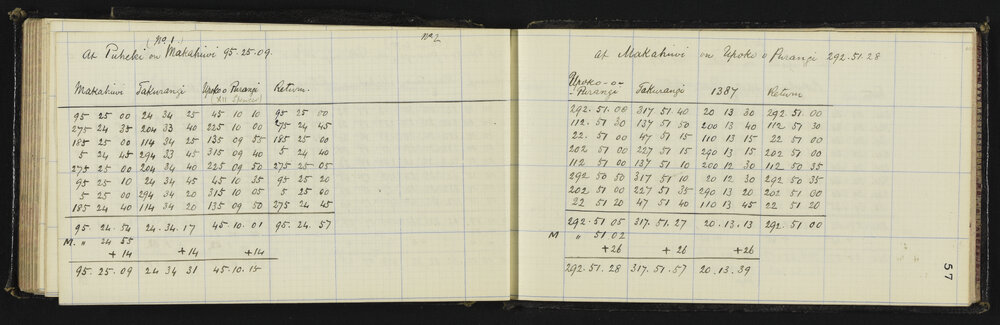 (No. 1)
No 2
At Puheki on Makahiwi 95.25.09.
Makahiwi Takurangi Upoko o Purangi Return.
(XII Spencer)
95 25 00 24 34 25 45 10 10 95 25 00
275 24 35 204 33 40 225 10 00 275 24 45
185 25 00 114 34 25 135 09 55 185 25 00
5 24 45 294 33 45 315 09 40 5 24 40
275 25 00 204 34 40 225 09 50 275 25 05
95 25 10 24 34 45 45 10 35 95 25 20
5 25 00 294 34 20 315 10 05 5 25 00
185 24 40 114 34 20 135 09 50 275 24 45
95. 24. 54 24. 34. 17 45. 10. 01 95. 24. 57
M. " 24 55
+14 +14 +14
95. 25. 09 24 34 31 45. 10. 15
at Makahiwi on Upoko o Purangi 292.51.28
Upoko-o-
-Purangi Takurangi 1387 Return
292. 51. 00 317 51 40 20 13 30 292 51. 00
112. 51. 30 137 51 50 200 13 40 112 51 30
22. 51. 00 47 51 15 110 13 15 22 51 00
202 51 00 227 51 15 290 13 15 202 51 00
112 51 00 137 51 10 200 12 30 112 50 35
292 50 50 317 51 10 20 12 30 292 50 35
202 51 00 227 51 35 290 13 20 202 51 00
22 51 20 47 51 40 110 13 45 22 51 20
292. 51. 05 317. 51. 27 20. 13. 13 292. 51. 00
M " 51 02
+26 +26 +26
292. 51. 28 317. 51. 57 20. 13. 39
57